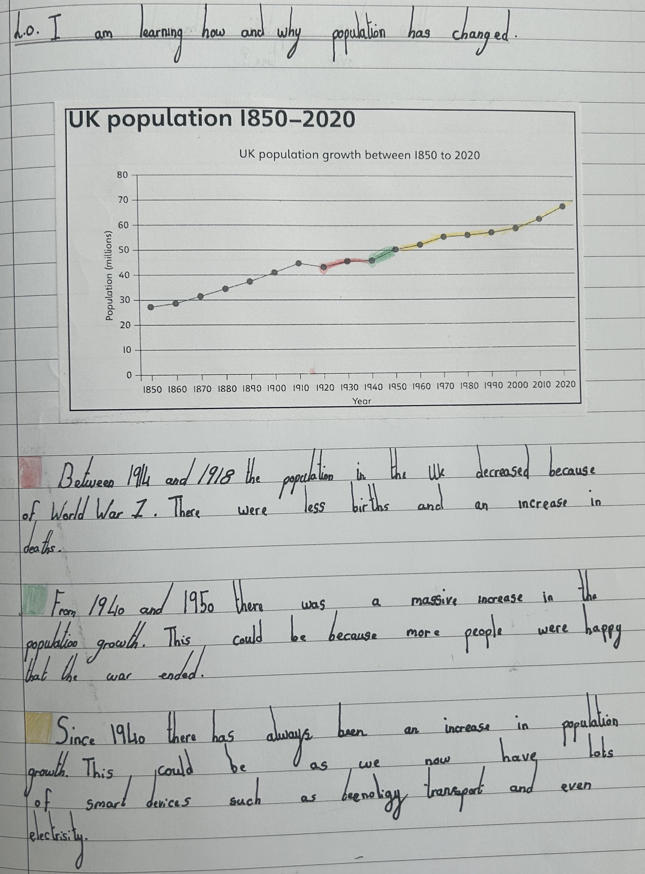 L.O. I am learning how and why population has changed.
UK population 1850–2020
UK population growth between 1850 to 2020
80
70
60
50
40
30
20
10
0
Population (millions)
1850 1860 1870 1880 1890 1900 1910 1920 1930 1940 1950 1960 1970 1980 1990 2000 2010 2020
Year
Between 1914 and 1918 the population in the UK decreased because
of World War I. There were less births and an increase in
deaths.
From 1940 and 1950 there was a massive increase in the
population growth. This could be because more people were happy
that the war ended.
Since 1940 there has always been an increase in population
growth. This could be as we now have lots
of smart devices such as transport and even
electrisity.